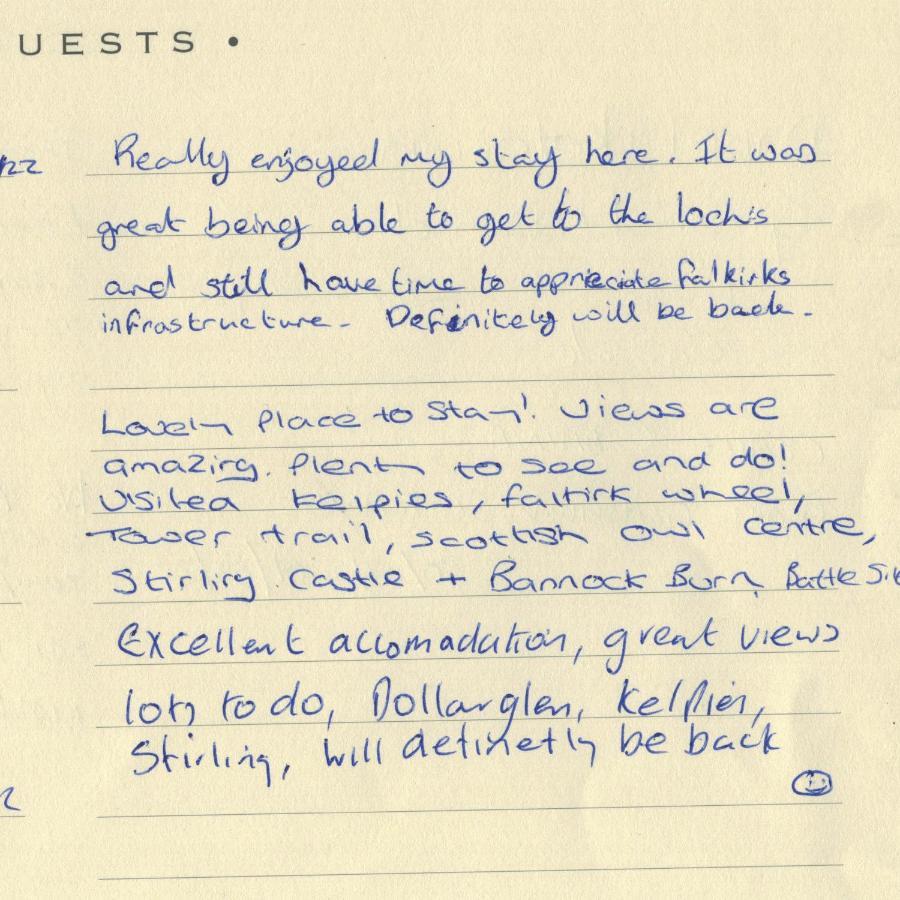 UESTS •
/22 Really enjoyed my stay here. It was
great being able to get to the lochs
and still have time to appreciate falkirks
infrastructure. Definitely will be back.
Lovely Place to Stay! Views are
amazing. Plenty to see and do!
Visited kelpies, falkirk wheel,
Tower trail, scottish owl centre,
Stirling Castle + Bannock Burn Battle Sit
Excellent accomadation, great views
lots to do, Dollarglen, Kelpies,
Stirling, will definetly be back
2 ☺